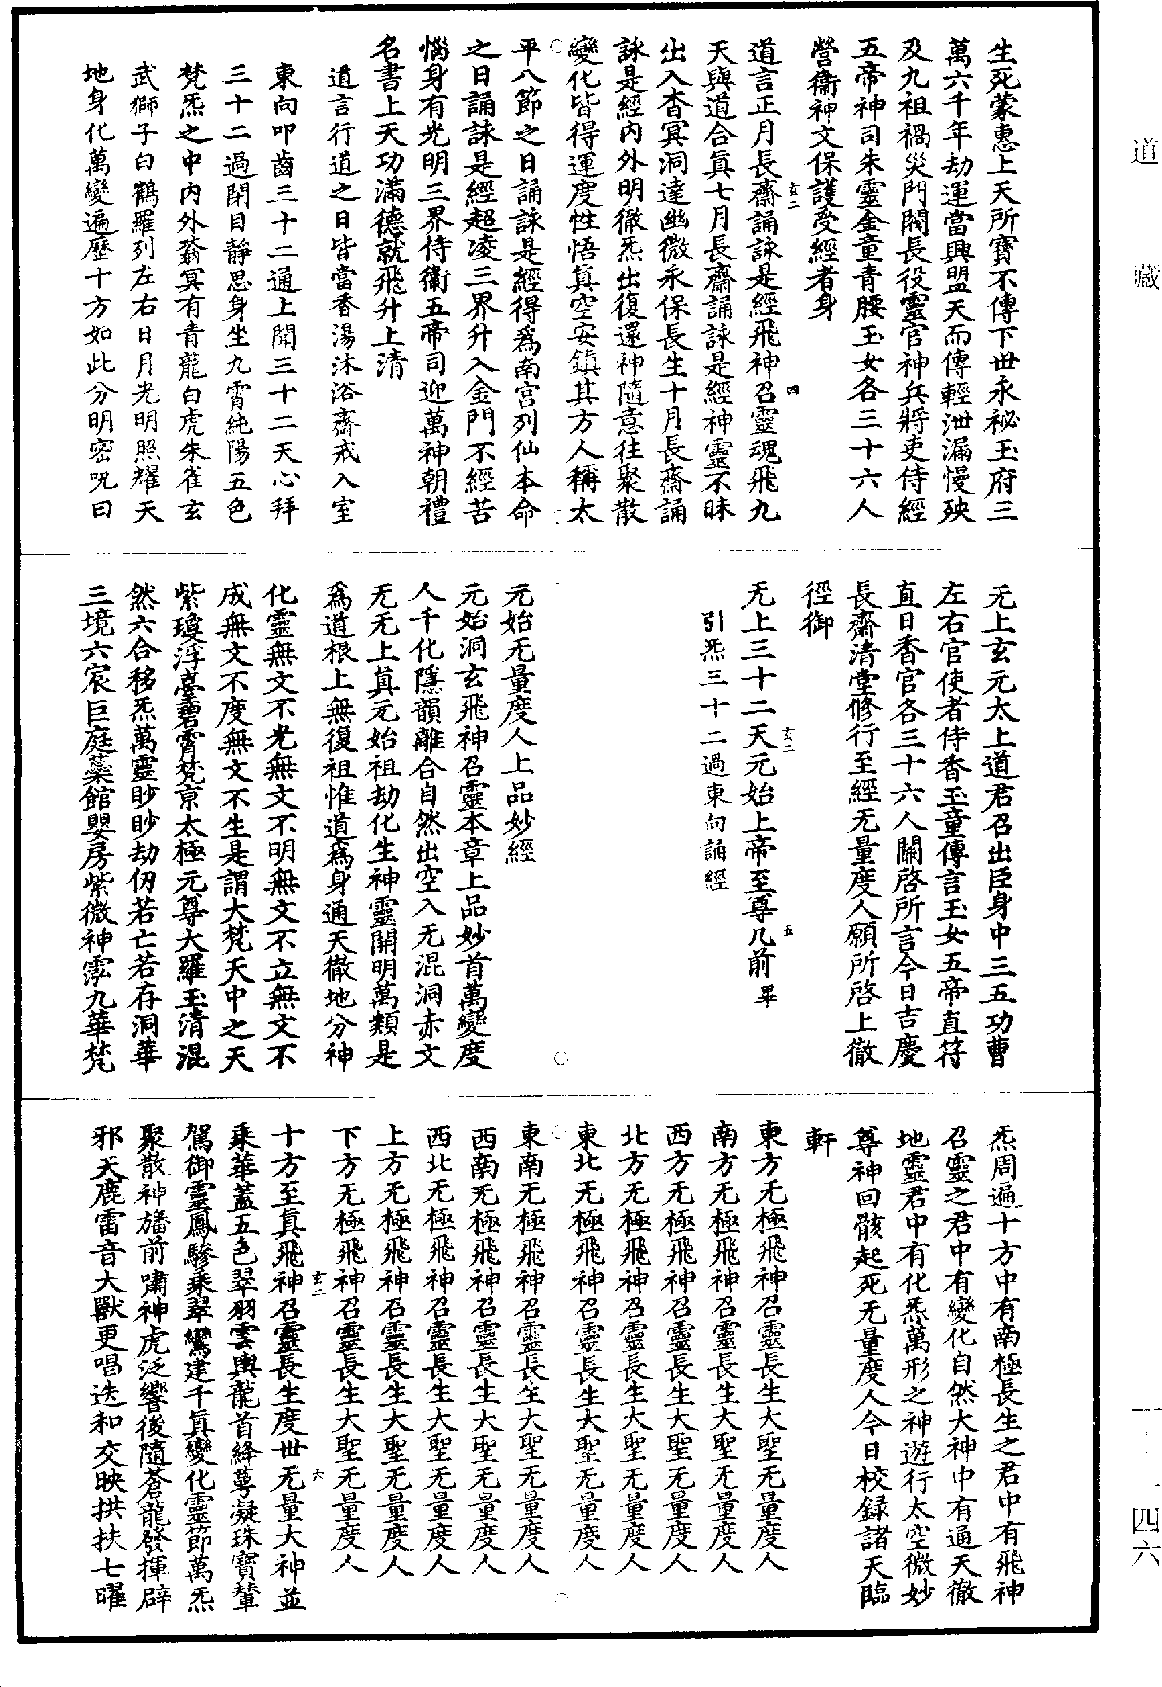 生死蒙惠上天所寶不傳下世永祕玉府三
萬六千年劫運當興盟天而傳輕泄漏慢殃
及九祖禍災門閥長役靈官神兵將吏侍經
五帝神司朱靈金童青腰玉女各三十六人
營衞神文保護受經者身
道言正月長齋誦詠是經飛神召靈魂飛九
天與道合眞七月長齋誦詠是經神靈不昧
出入杳冥洞達幽微永保長生十月長齋誦
詠是經內外明徹炁出復還神隨意往聚散
變化皆得運度性悟眞空安鎭其方人稱太
平八節之日誦詠是經得爲南宮列仙本命
之日誦詠是經超凌三界升入金門不經苦
惱身有光明三界侍衞五帝司迎萬神朝禮
名書上天功滿德就飛升上清
道言行道之日皆當香湯沐浴齋戒入室
東向叩齒三十二通上聞三十二天心拜
三十二過閉目靜思身坐九霄純陽五色
梵炁之中內外蓊冥有青龍白虎朱雀玄
武獅子白鶴羅列左右日月光明照耀天
地身化萬變遍歷十方如此分明密呪曰
无上玄元太上道君召出臣身中三五功曹
左右官使者侍香玉童傳言玉女五帝直符
直日香官各三十六人關啓所言今日吉慶
長齋清堂修行至經无量度人願所啓上徹
徑御
无上三十二天元始上帝至尊几前畢
引炁三十二過東向誦經
元始无量度人上品妙經
元始洞玄飛神召靈本章上品妙首萬變度
人千化隱韻離合自然出空入无混洞赤文
无无上眞元始祖劫化生神靈開明萬類是
爲道根上無復祖惟道爲身通天徹地分神
化靈無文不光無文不明無文不立無文不
成無文不度無文不生是謂大梵天中之天
紫瓊浮臺碧霄梵京太極元尊大羅玉清混
然六合移炁萬靈眇眇劫仞若亡若存洞華
三境六宸巨庭蘂館嬰房紫微神霄九華梵
炁周遍十方中有南極長生之君中有飛神
召靈之君中有變化自然大神中有通天徹
地靈君中有化炁萬形之神遊行太空微妙
尊神回骸起死无量度人今日校錄諸天臨
軒
東方无極飛神召靈長生大聖无量度人
南方无極飛神召靈長生大聖无量度人
西方无極飛神召靈長生大聖无量度人
北方无極飛神召靈長生大聖无量度人
東北无極飛神召靈長生大聖无量度人
東南无極飛神召靈長生大聖无量度人
西南无極飛神召靈長生大聖无量度人
西北无極飛神召靈長生大聖无量度人
上方无極飛神召靈長生大聖无量度人
下方无極飛神召靈長生大聖无量度人
十方至眞飛神召靈長生度世无量大神並
乘華蓋五色翠羽雲輿龍首絳蕚凝珠寶輦
駕御靈鳳驂乘翠鸞建千眞變化靈節萬炁
聚散神旛前嘯神虎泛響後隨蒼龍發揮辟
邪天鹿雷音大獸更唱迭和交映拱扶七曜
玄二
四
玄二
五
玄二
六
道藏
一-一四六